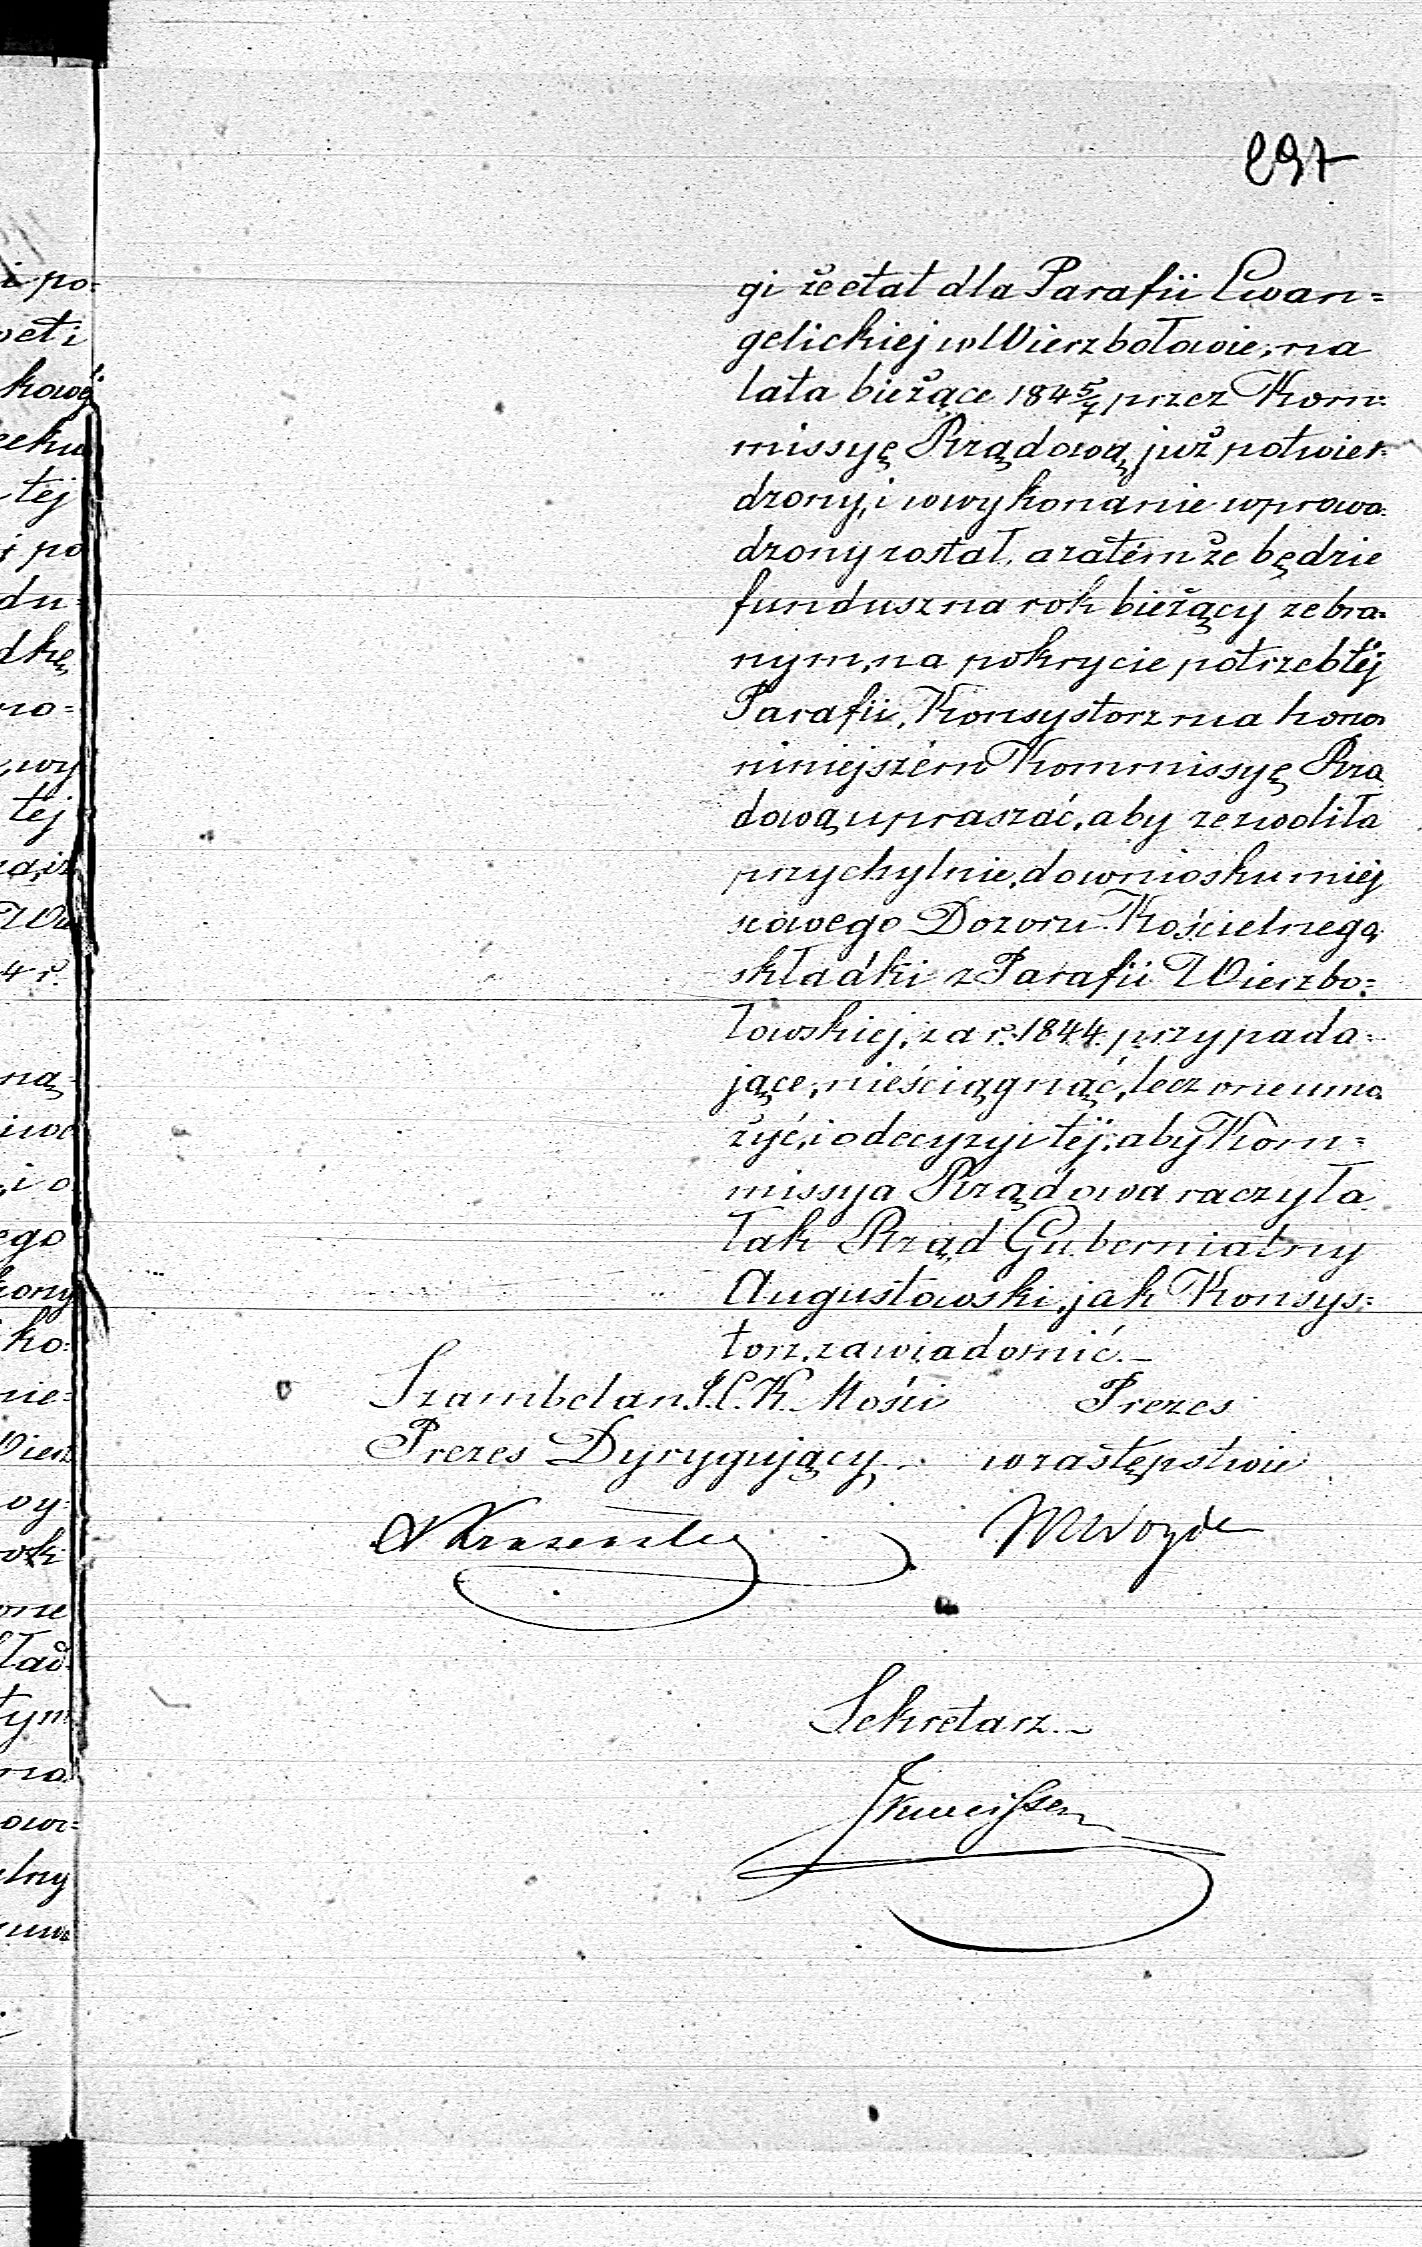 297
gi że etat dla Parafii Ewan=
gelickiej w Wierzbołowie, na
lata bieżące 184 5/7 przez Kom=
missyę Rządową już potwier=
dzony, i w wykonanie wprowa=
dzony został, a zatém że będzie
fundusz na rok bieżący zebra=
nym, na pokrycie potrzeb téj
Parafii, Konsystorz ma honor
niniejszém Kommissyę Rzą
dową upraszać, aby zezwoliła
przychylnie, do wniosku miej
scowego Dozoru Kościelnego,
składki z Parafii Wierzbo=
łowskiej, za r. 1844 przypada=
jące, nieściągnąć, lecz one umo=
rzyć, i o decyzyi téj, aby Kom=
missya Rządowa raczyła
tak Rząd Gubernialny
Augustowski, jak Konsys=
torz, zawiadomić.—
Szambelan J. C. K. Mości Prezes
Prezes Dyrygujący w zastępstwie
Sekretarz.